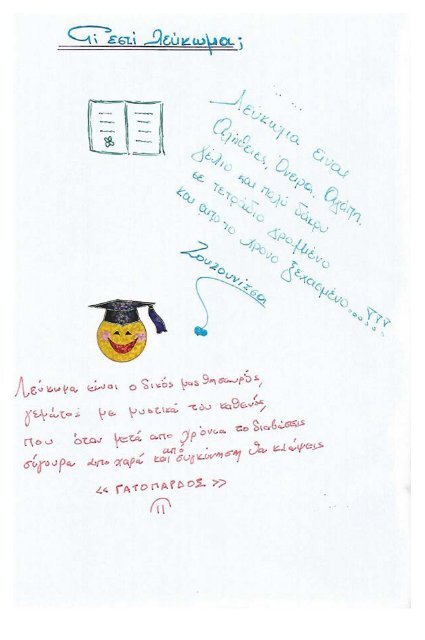 Τι εστί Λεύκωμα;
Λεύκωμα είναι
Αλήθειες, Όνειρα, Αγάπη,
γέλιο και πολύ δάκρυ
σε τετράδιο γραμμένο
και απο το χρόνο ξεχασμένο...!!!
Ζουζουνίτσα
Λεύκωμα είναι ο δικός μας θησαυρός,
γεμάτος με μυστικά του καθενός,
που όταν μετά απο χρόνια το διαβάσεις
σίγουρα απο χαρά και από συγκίνηση θα κλάψεις
<< ΓΑΤΟΠΑΡΔΟΣ >>